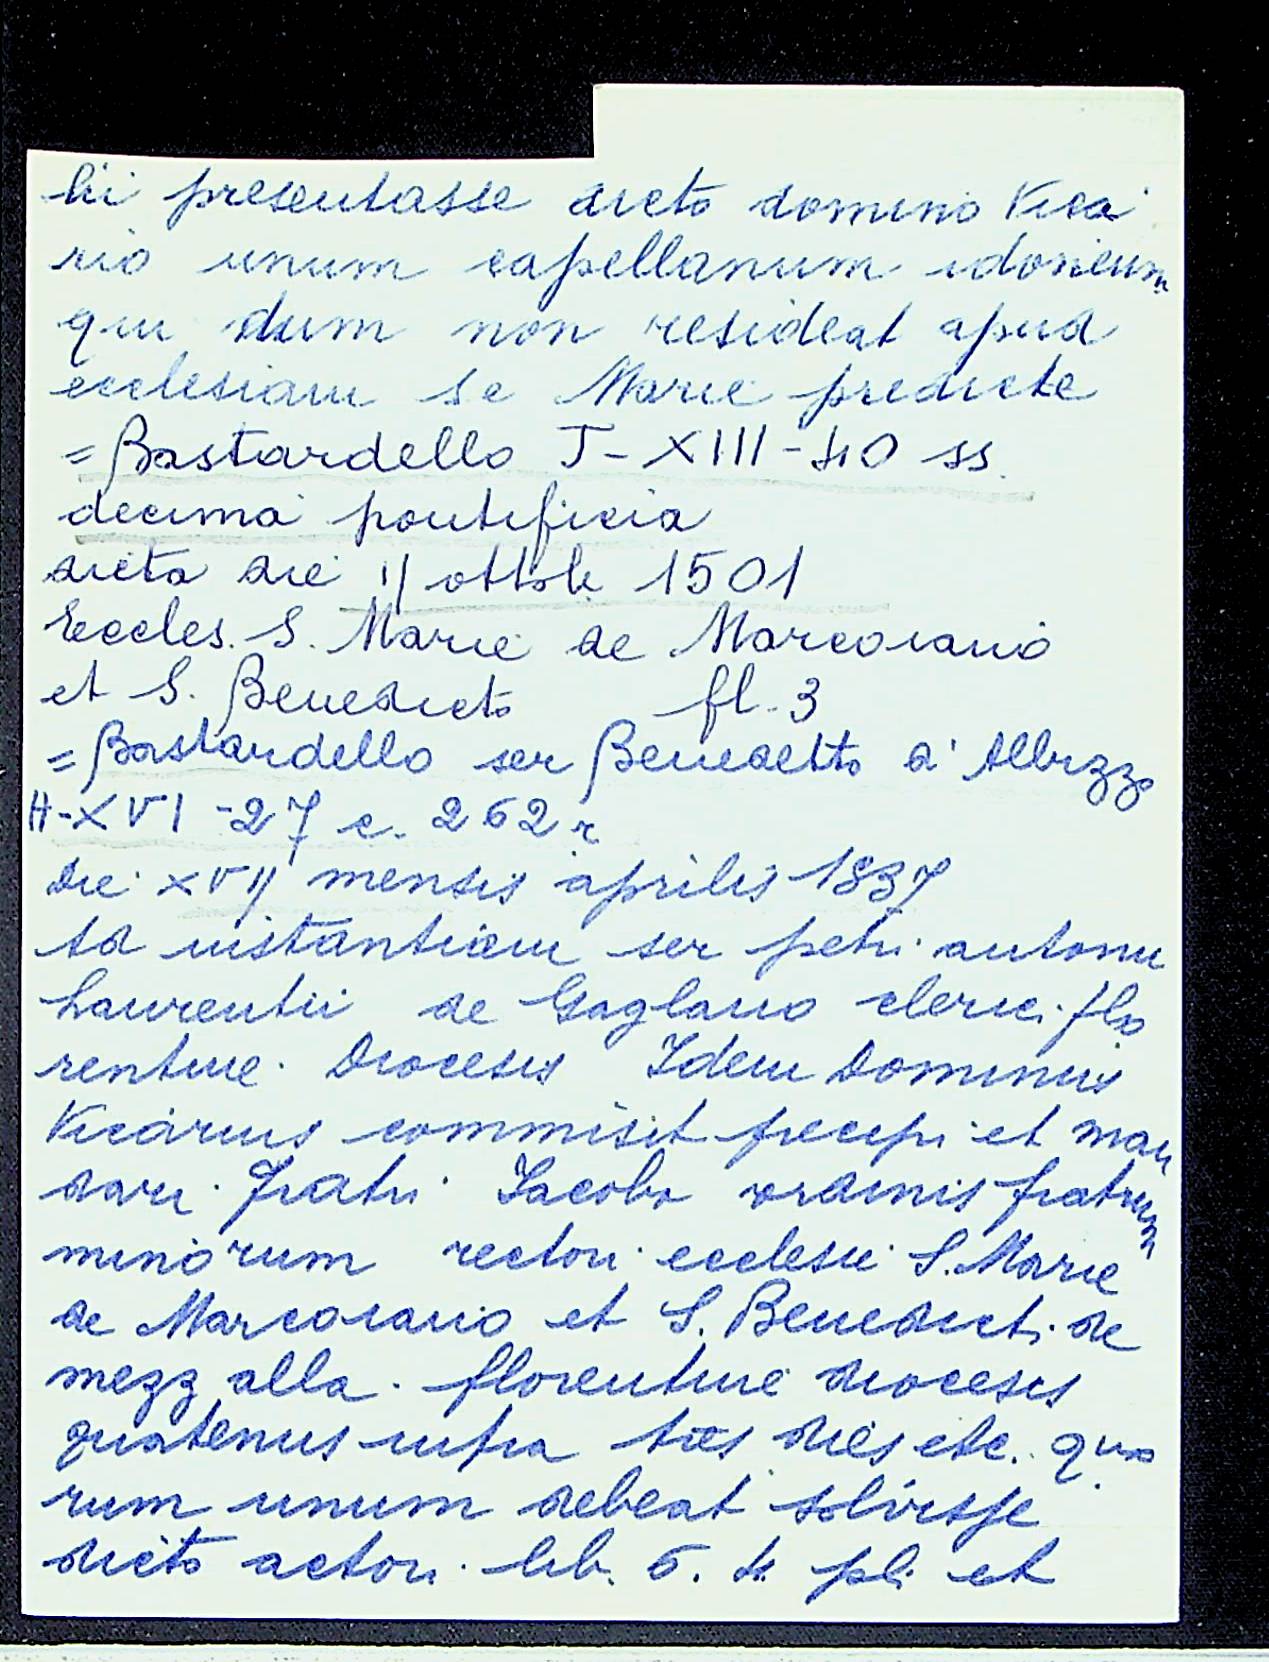 bii presentasse dicto domino Vica
rio unum capellanum idoneum
qui dum non resideat apud
ecclesiam Se Marie predicte
= Bastardello J - XIII - 40 ss.
decima pontificia
dicta die 11 ottob. 1501
Eccles. S. Marie de Marcoiano
et S. Benedicto fl. 3
= Bastardello ser Benedetto d'Albizzo
H - XVI - 27 c. 262 r
Die XVII mensis aprilis 1837
Ad instantiam ser petri antonii
Laurentii de Gagliano clerici flo
rentine. Diocesis Idem Dominus
Vicarius commisit precepi et man
dari. fratri Iacobo ordinis fratrum
minorum rectori ecclesie S. Marie
de Marcoiano et S. Benedicti de
mezz alla. florentine diocesis
quatenus infra tres dies etc. quo
rum unum debeat solvisse
dicto actori. lib. 5. 4. pli et